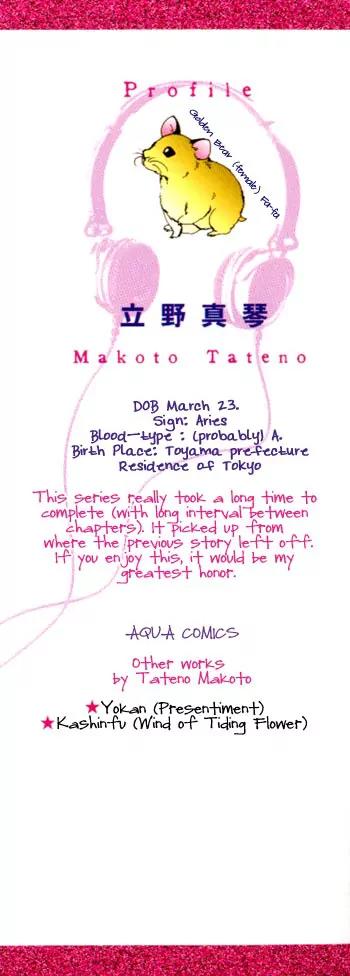 Profile
Golden Bear (female) Fa-fa
立野真琴
Makoto Tateno
DOB March 23.
Sign: Aries
Blood-type : (probably) A.
Birth Place: Toyama prefecture
Residence of Tokyo
This series really took a long time to
complete (with long interval between
chapters). It picked up from
where the previous story left off.
If you enjoy this, it would be my
greatest honor.
AQUA COMICS
Other works
by Tateno Makoto
★Yokan (Presentiment)
★Kashin-fu (Wind of Tiding Flower)